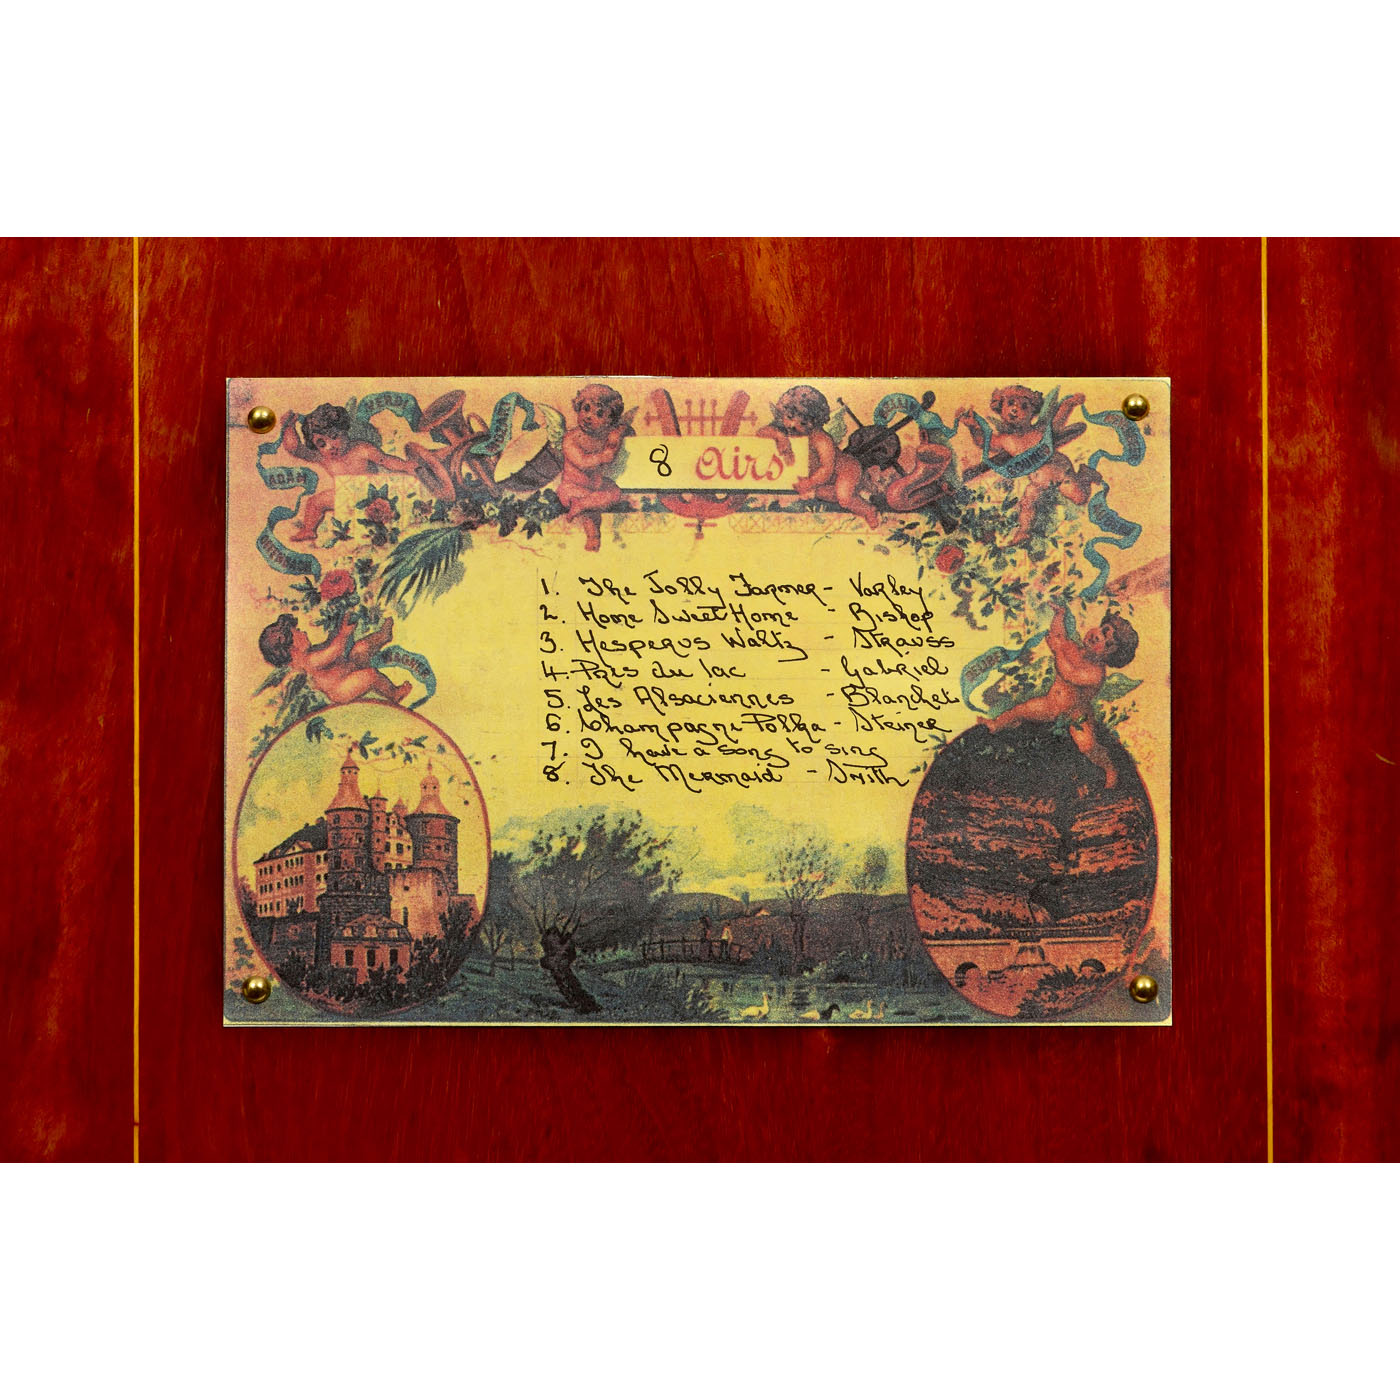 VERDI
ADAM
8 Airs
WAGNER
1. The Jolly Farmer - Varley
2. Home Sweet Home - Bishop
3. Hesperus Waltz - Strauss
4. Près du lac - Gabriel
5. Les Alsaciennes - Blanchet
6. Champagne Polka - Steiner
7. I have a song to sing
8. The Mermaid - Smith